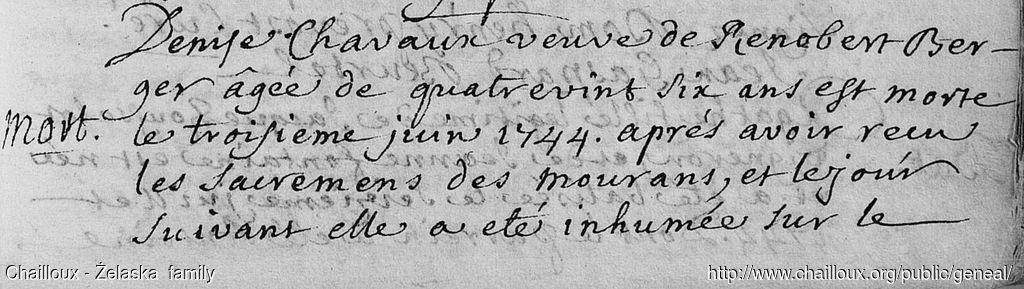 Denise Chavaux veuve de Renobert Ber-
ger âgée de quatrevint six ans est morte
mort. le troisieme juin 1744. aprés avoir recu
les sacremens des mourans, et le jour
suivant elle a eté inhumée sur le
Chailloux - Želaska family
http://www.chailloux.org/public/geneal/